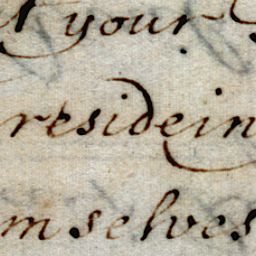 your
residein
mselves